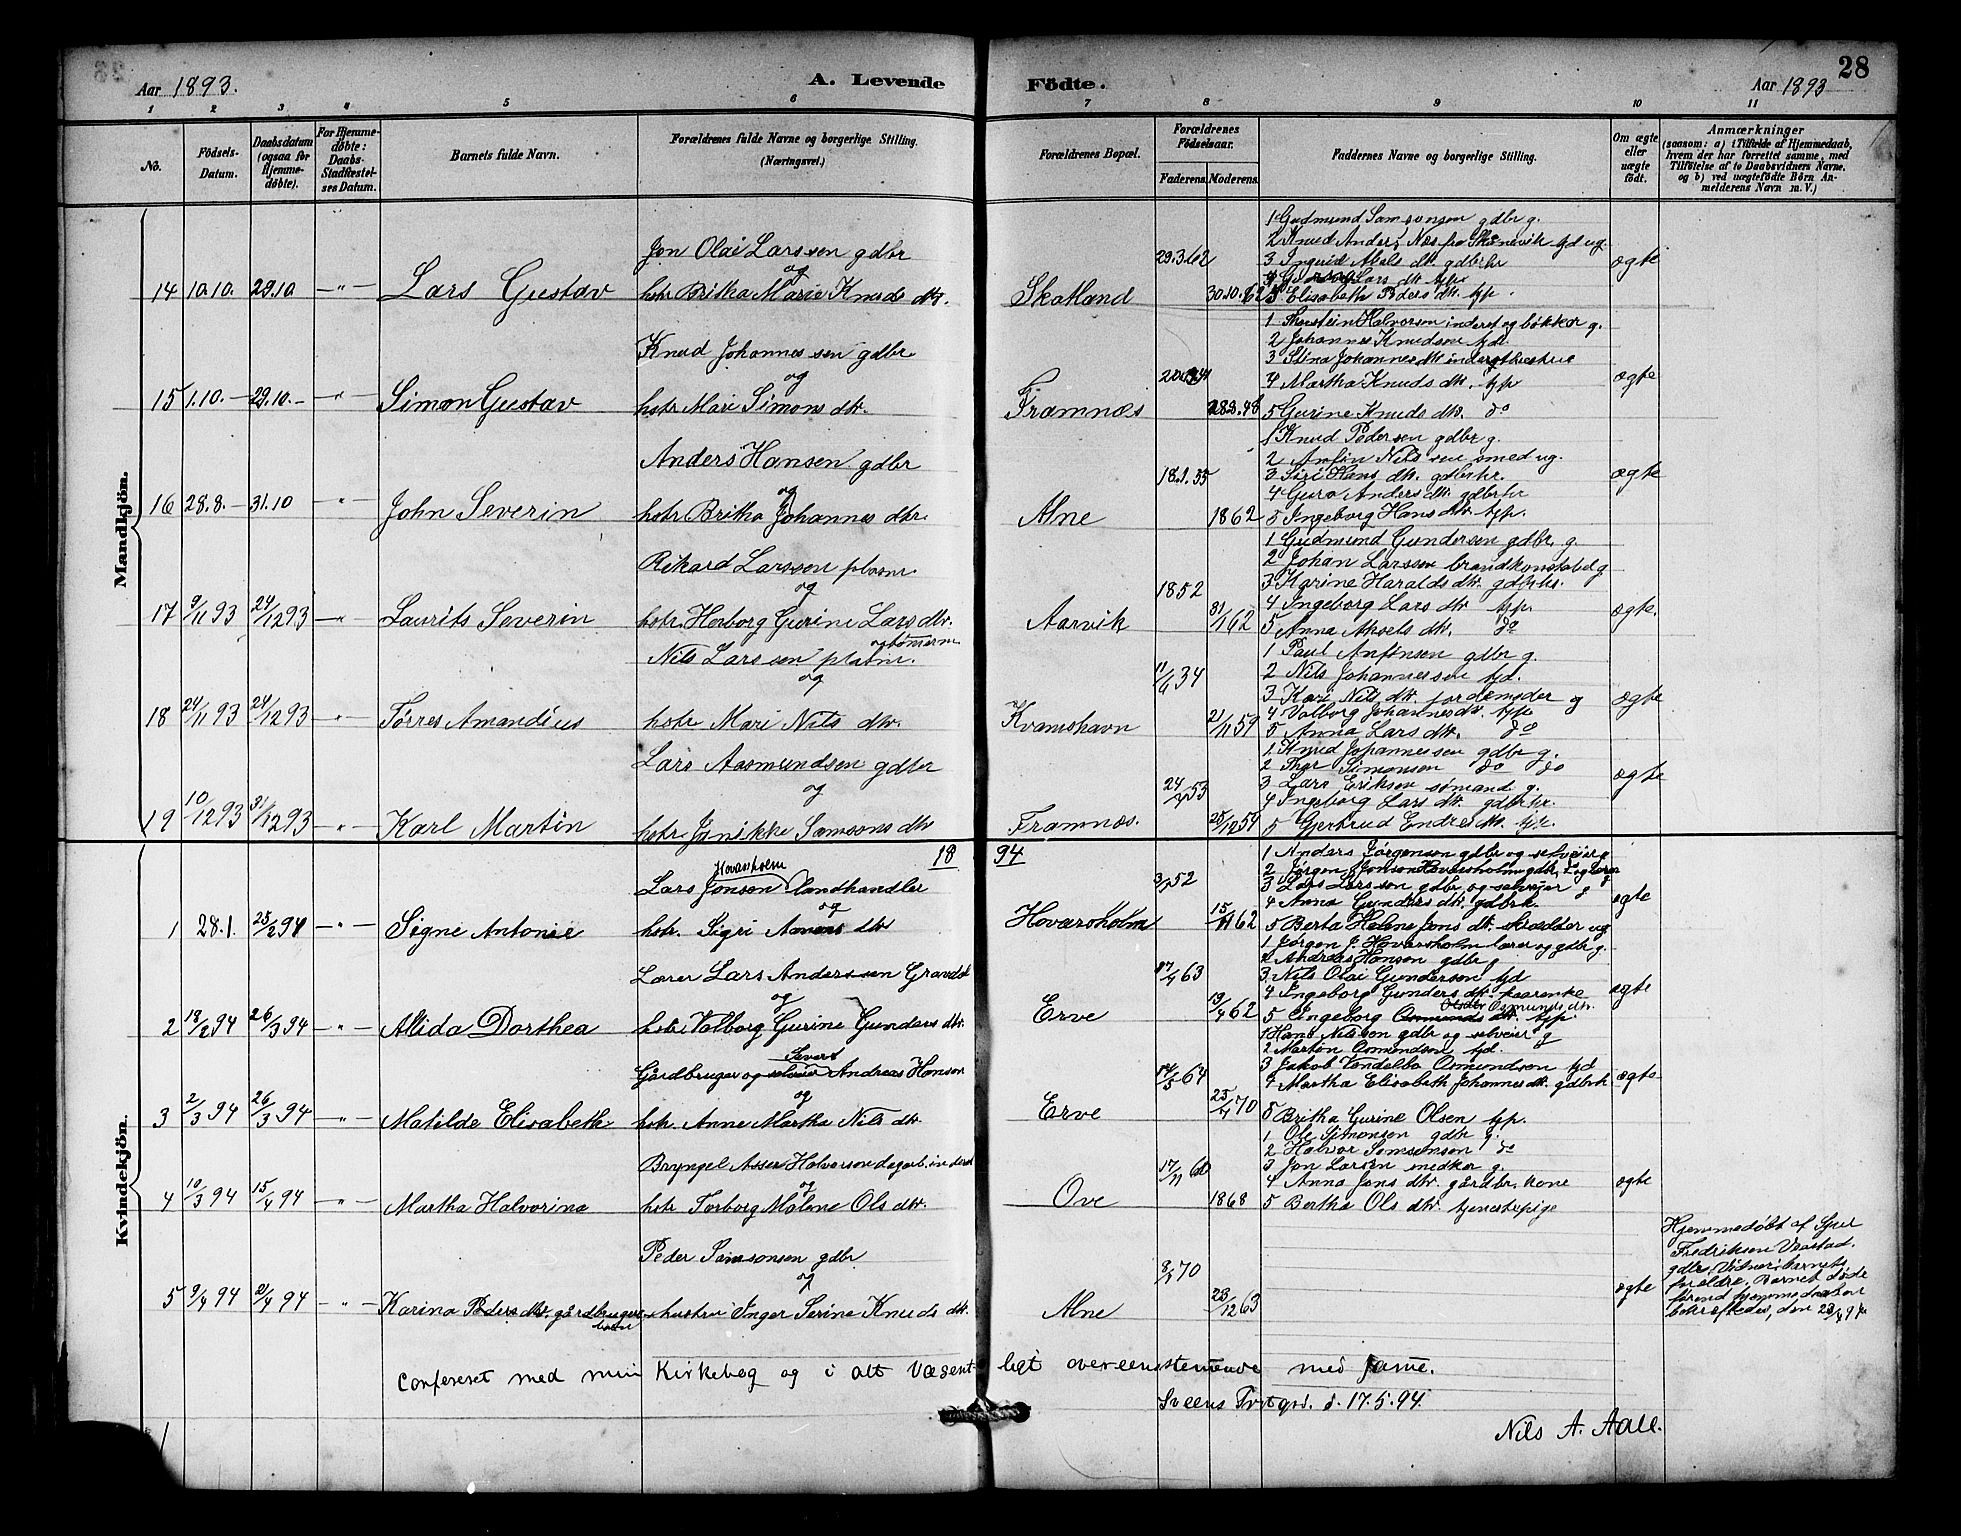 Aar 1893.
A. Levende
Födte.
Aar 1893
28
1 2 3 4 5 6 7 8 9 10 11
No.
Födsels-Datum.
Daabsdatum (ogsaa for Hjemme-döbte).
For Hjemme-döbte: Daabs-Stadfæstel-ses Datum.
Barnets fulde Navn.
Forældrenes fulde Navne og borgerlige Stilling.
(Næringsvei.)
Forældrenes Bopæl.
Forældrenes Födselsaar.
Faderens. Moderens.
Faddernes Navne og borgerlige Stilling.
Om ægte eller uægte födt.
Anmærkninger
(saasom: a) i Tilfælde af Hjemmedaab,
hvem der har forrettet samme, med
Tilföielse af to Daabsvidners Navne,
og b) ved uægtefödte Börn An-
melderens Navn m. V.)
Mandkjön.
14 10.10. 29.10 —"— Lars Gustav
Jon Olai Larssen gdbr
og
hstr Britha Marie Knuds dtr.
Skatland
29.3.62
30.10.62
1 Gudmund Samsonsen gdbr g.
2 Knud Anders. Næs fra Skånevik tjd ug.
3 Ingerid Abels dtr gdbrkr
5 Elisabeth Peders dtr. tjp.
ægte
15 1.10.— 29.10.— —"— Simon Gustav
Knud Johannessen gdbr
og
hstr Mari Simons dtr.
Framnæs
1 Thorstein Halvorsen inderst og bökker g.
2 Johannes Knudsen tjd.
3 Stina Johannes dtr inderst hustrue
4 Martha Knuds dtr. tjp
5 Gurine Knuds dtr. do
ægte
16 28.8.— 31.10 —"— John Severin
Anders Hansen gdbr
og
hstr Britha Johannes dtr.
Alne
18.1.35
1862
1 Knud Pedersen gdbr g.
2 Anfin Nilssen smed ug.
3 Siri Hans dtr. gdbrkr.
4 Guro Anders dtr. gdbrkr
5 Ingeborg Hans dtr. tjp.
ægte
17 9/11 93 24/12 93 —"— Laurits Severin
Rikard Larssen plasm.
og
hstr. Herborg Gurine Lars dtr.
Aarvik
1852
31/1 62
1 Gudmund Gundersen gdbr. g.
2 Johan Larssen brandkonstabel g
3 Karine Haralds dtr. gdbrkr.
4 Ingeborg Lars dtr tjp.
5 Anna Aksels dtr. do
ægte.
18 24/11 93 24/12 93 —"— Tørres Amandius
Nils Larssen platm. og tömerm
og
hstr Mari Nils dtr.
Kvamshavn
11/6 34
21/11 59
1 Paul Anfinsen gdbr g.
2 Nils Johannessen tjd.
3 Kari Nils dtr. jordemoder g
4 Valborg Johannes dtr. tjp
5 Anna Lars dtr. do
ægte
19 10/12 93 31/12 93 —"— Karl Martin
Lars Aasmundsen gdbr
og
hstr. Jønikke Samsons dtr
Framnæs.
24/2 53
25/12 59
1 Knud Johannessen gdbr g.
2 Thor Simonsen do do
3 Lars Eriksen sømand g.
4 Ingeborg Lars dtr. gdbrkr.
5 Gjertrud Endres dtr. tjp.
ægte
18 94
Kvindekjön.
1 28.1. 25/2 94 —"— Signe Antonie
Hovarsholm
Lars Jonson landhandler
og
hstr. Sigri Amans dtr
Hovarsholm
3/1 52
15/11 62
1 Anders Jørgensen gdbr og selveier g
2 Jørgen Jonson Hovarsholm gdbr. og lærer
3 Lars Larssen gdbr og selveier g
4 Anna Gunders dtr. gdbrk.
5 Berta Helene Jons dtr. skrædder ug
ægte
2 18/2 94 26/3 94 —"— Alida Dorthea
Lærer Lars Anderssen Gravdal
og
hstr Valborg Gurine Gunders dtr.
Erve
17/4 63
19/4 62
1 Jørgen J. Hovarsholm lærer og gdbr g.
2 Andreas Hanson gdbr g
3. Nils Olai Gunderson tjd
4 Ingeborg Gunders dtr. kaarenke
5 Ingeborg Osmunds dtr. tjp.
ægte
3 2/3 94 26/3 94 —"— Matilde Elisabeth
Gårdbruger og selveier Andreas Hanson
og
hstr. Anne Martha Nils dtr.
Erve
14/5 64
25/4 70
1 Hans Nilsson gdbr og selveier g
2 Martin Osmundson tjd.
3 Jakob Vendelbo Osmundson tjd
4 Martha Elisabeth Johannes dtr. gdbrk
5 Britha Gurine Olsen tjp.
ægte
4 10/3 94 15/4 94 —"— Martha Halvorina
Bryngel Asser Halvorson dagarb. inderst
og
hstr Torborg Malene Ols dtr.
Ove
17/11 60
1868
1 Ole Simonsen gdbr g.
2 Halvor Samsonson do
3 Jon Larsen snedker g.
4 Anna Jons dtr. gårdbr. kone
5 Bertha Ols dtr. tjenestepige
ægte
5 9/4 94 21/4 94 —"— Karina Peders dtr. gårdbruger
barn
Peder Samsonsen gdbr
og
hustru Inger Serine Knuds dtr.
Alne
8/3 70
23/12 63
ægte
Hjemmedøbt af Sjur
Fredriksen Vaastad.
gdbr. Vidner: barnets
forældre. Barnet døde
førend hjemmedaaben
bekræftedes, den 23/4 94
Confereret med min Kirkebog og i alt Væsent ligt overeenstemende med samme.
Sveens Prstgrd. d. 17.5.94.
Nils A. Aall.